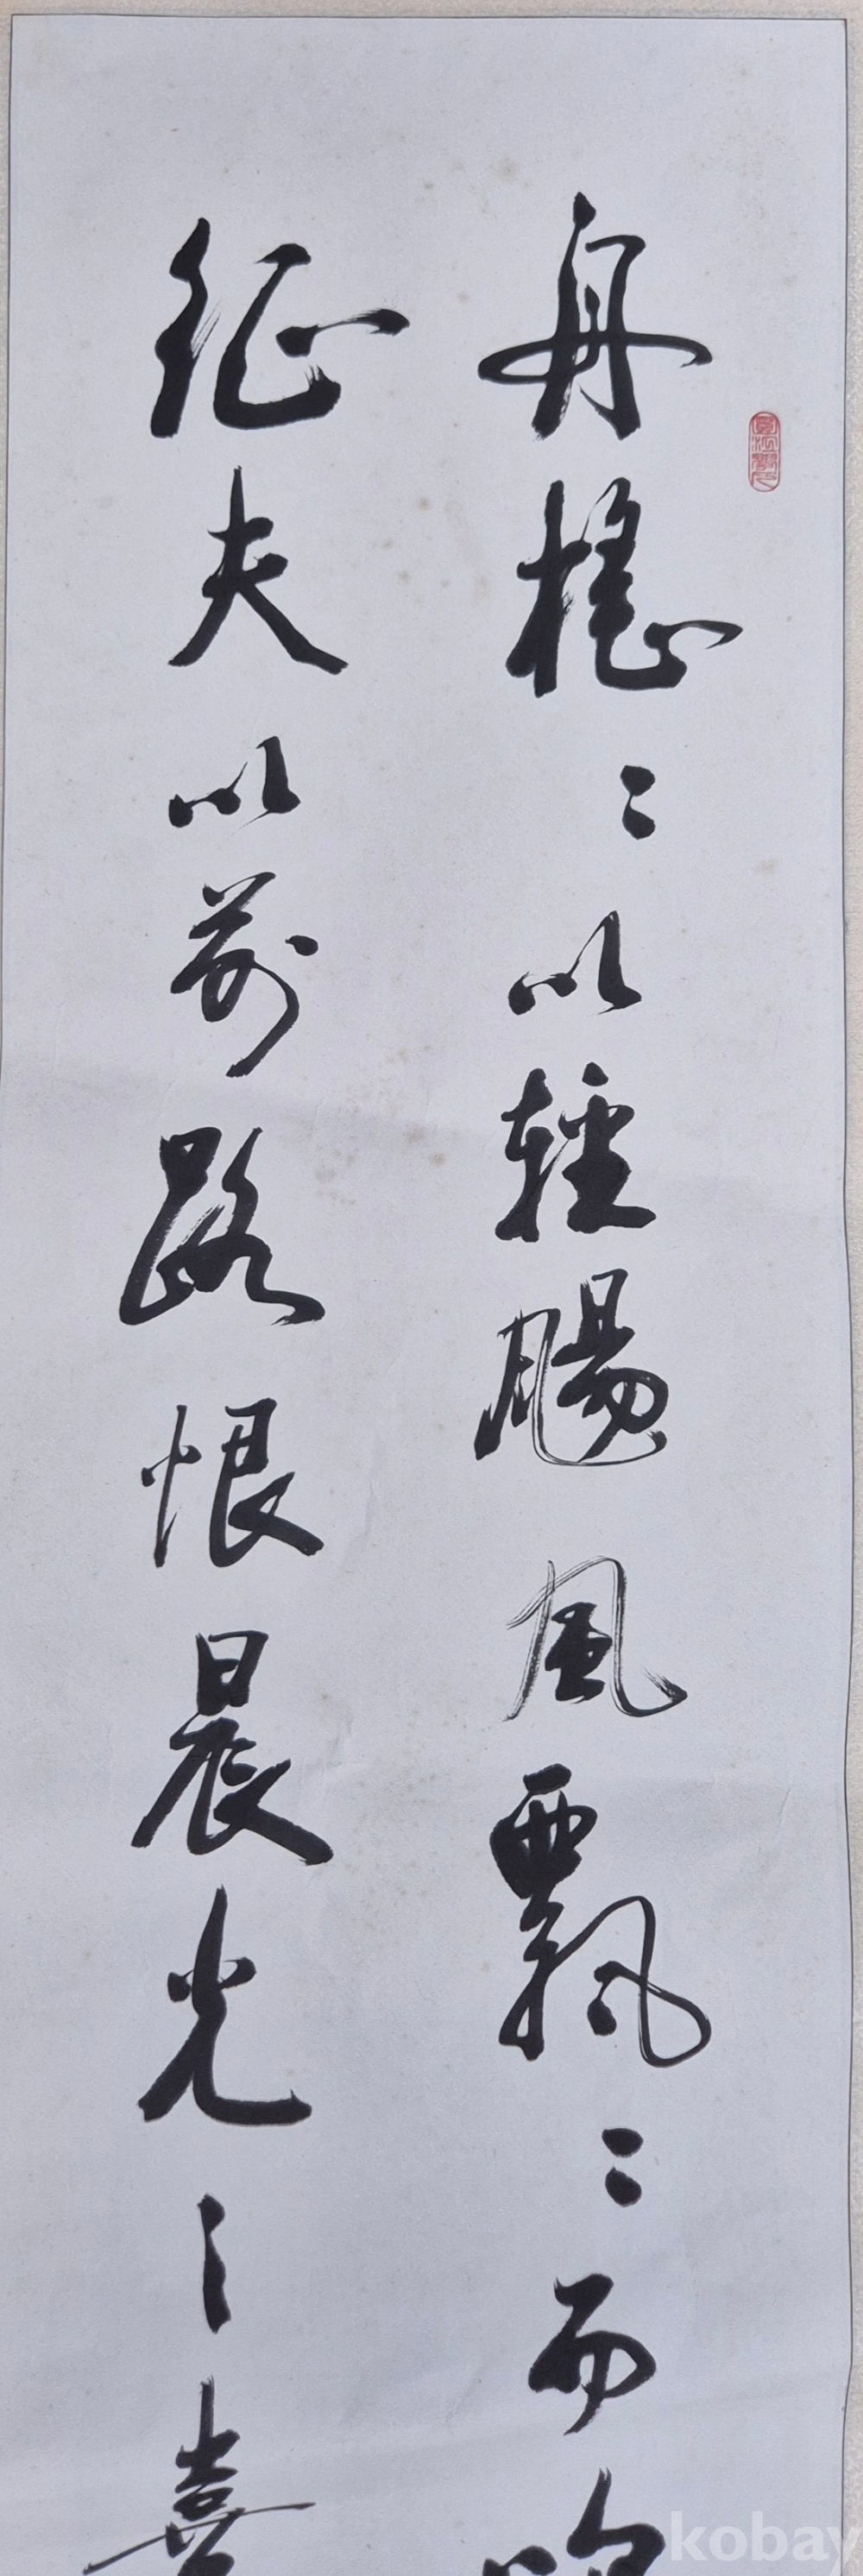 舟搖〻以輕颺風飄〻而吹
征夫以前路恨晨光之熹
kobay